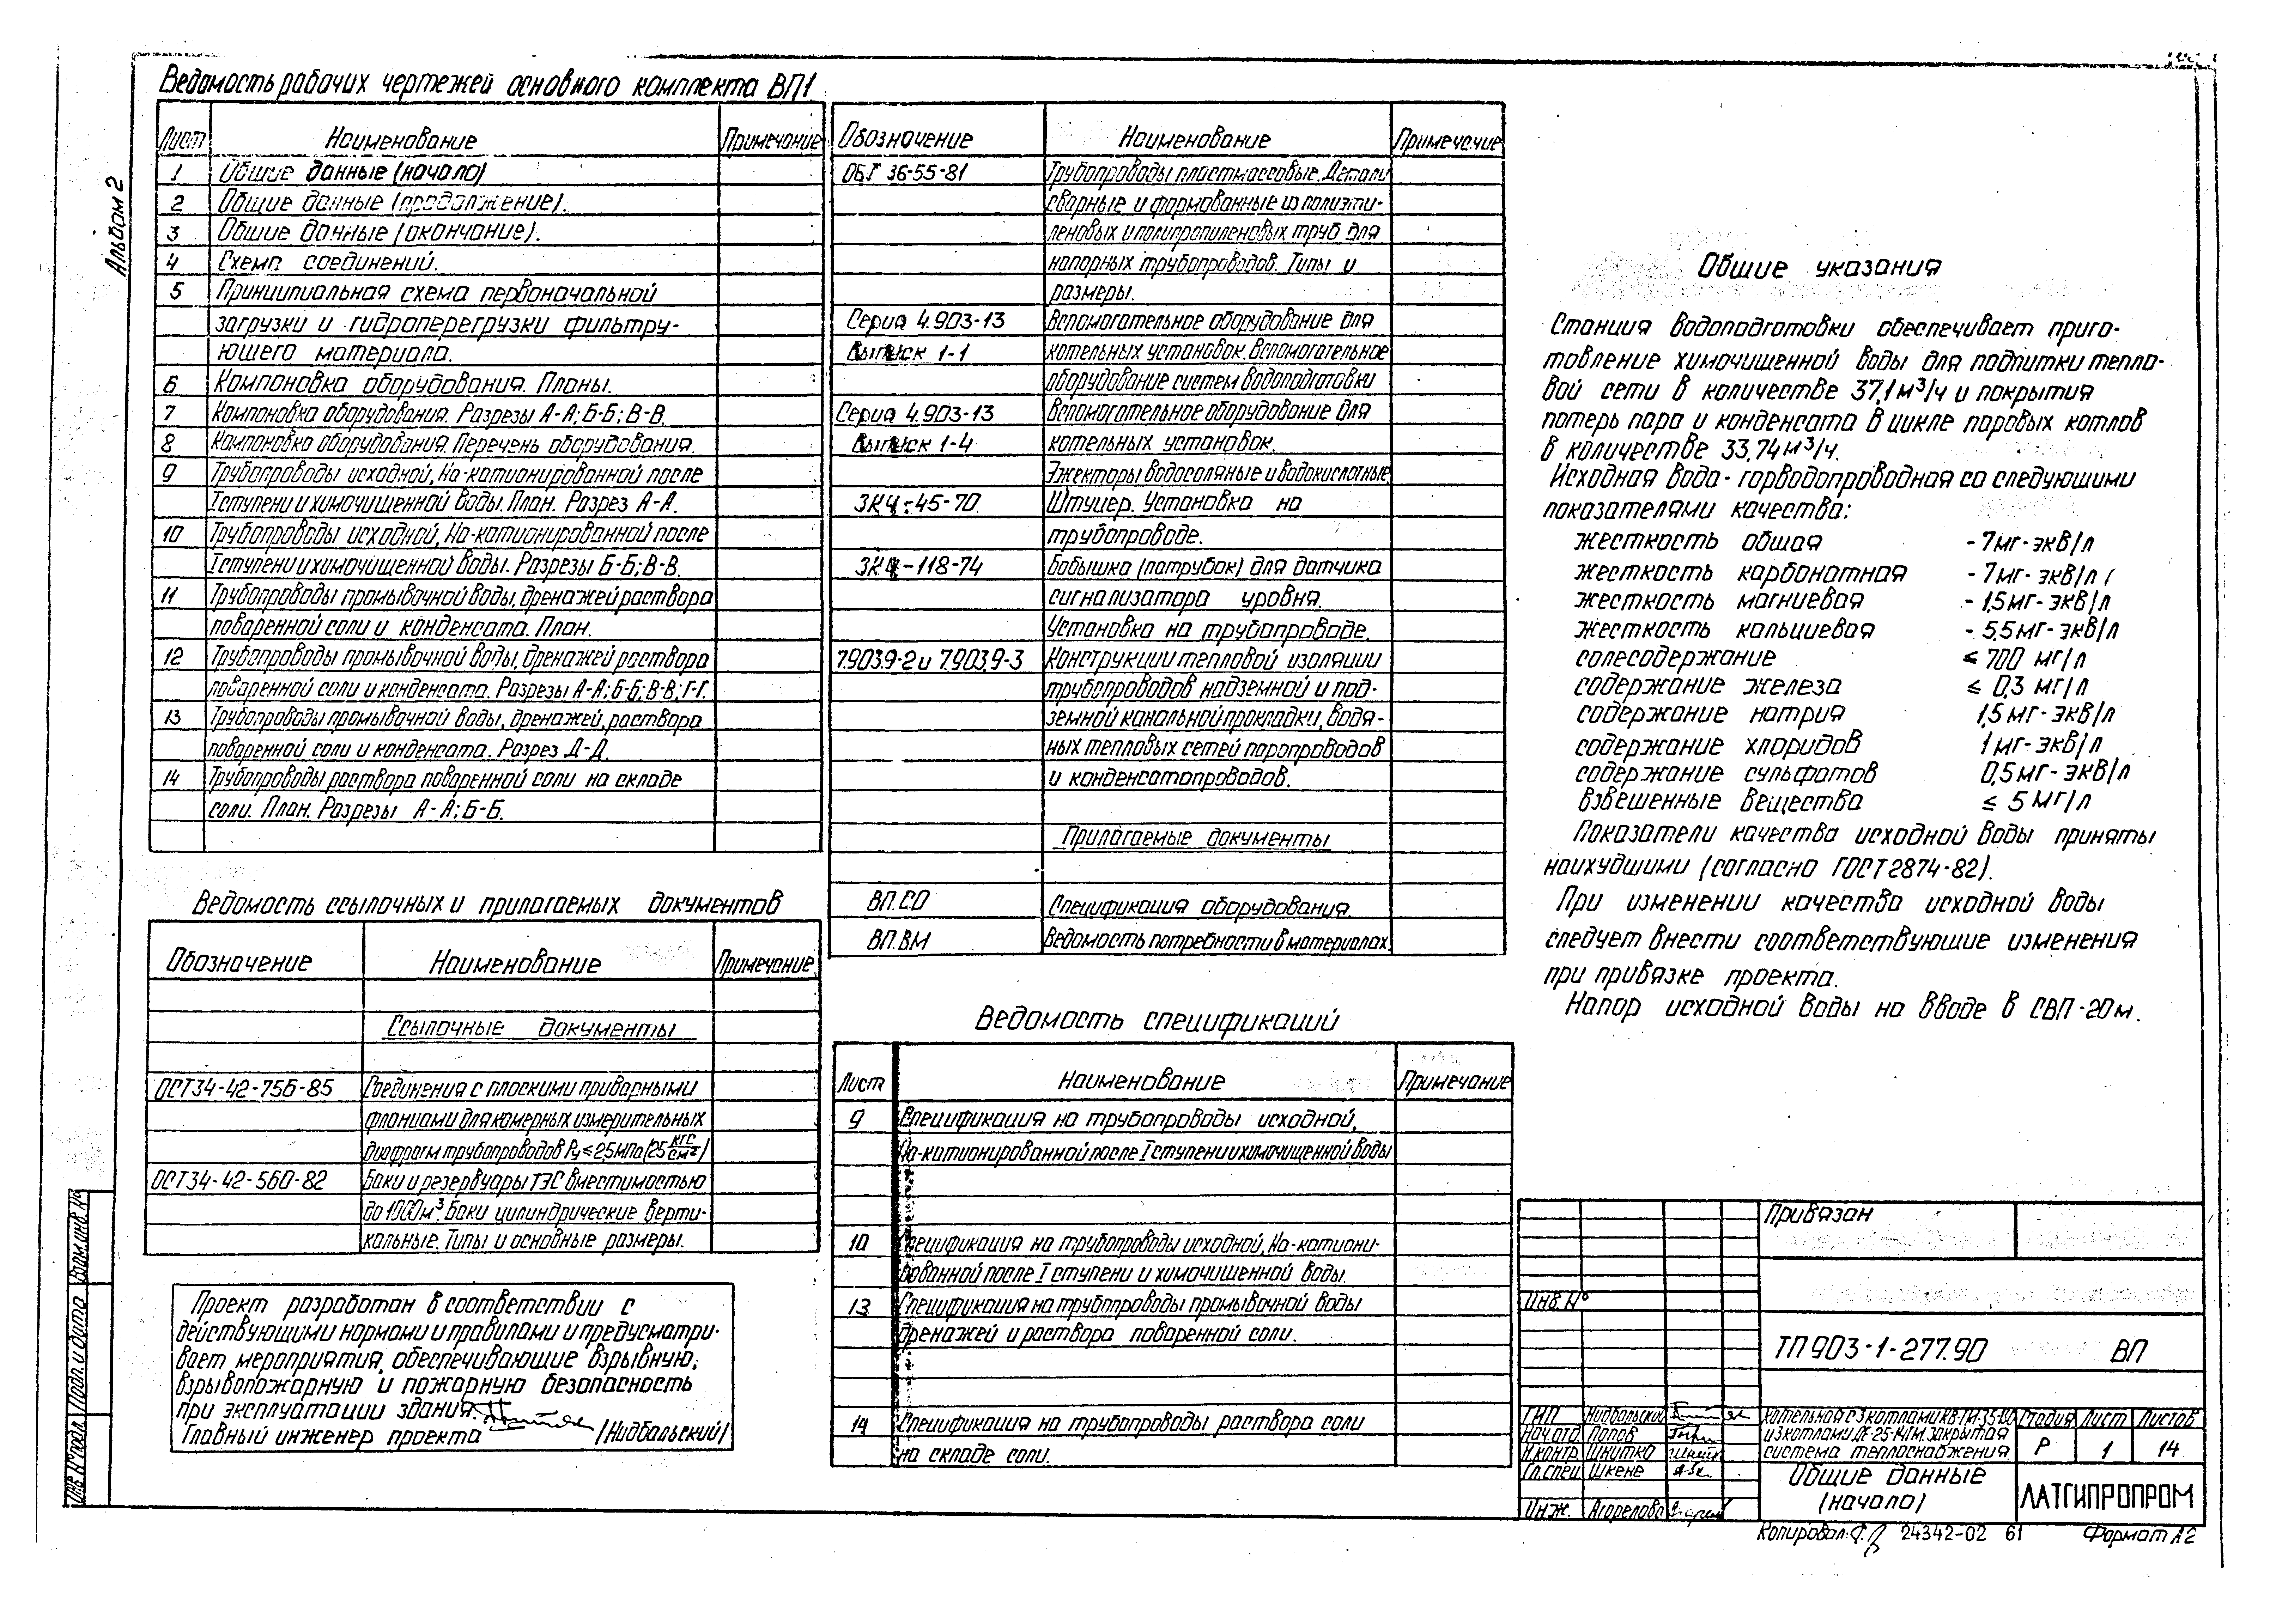 Альбом 2
Ведомость рабочих чертежей основного комплекта ВП1
Лист Наименование Примечание
1 Общие данные (начало)
2 Общие данные (продолжение).
3 Общие данные (окончание).
4 Схема соединений.
5 Принципиальная схема первоначальной
загрузки и гидроперегрузки фильтру-
ющего материала.
6 Компоновка оборудования. Планы.
7 Компоновка оборудования. Разрезы А-А; Б-Б; В-В.
8 Компоновка оборудования. Перечень оборудования.
9 Трубопроводы исходной, Na-катионированной после
I ступени и химочищенной воды. План. Разрез А-А.
10 Трубопроводы исходной, Na-катионированной после
I ступени и химочищенной воды. Разрезы Б-Б; В-В.
11 Трубопроводы промывочной воды, дренажей раствора
поваренной соли и конденсата. План.
12 Трубопроводы промывочной воды, дренажей раствора
поваренной соли и конденсата. Разрезы А-А; Б-Б; В-В; Г-Г.
13 Трубопроводы промывочной воды, дренажей, раствора
поваренной соли и конденсата. Разрез Д-Д.
14 Трубопроводы раствора поваренной соли на складе
соли. План. Разрезы А-А; Б-Б.
Ведомость ссылочных и прилагаемых документов
Обозначение Наименование Примечание
Ссылочные документы
ОСТ34-42-756-85 Соединения с плоскими приварными
фланцами для камерных измерительных
диафрагм трубопроводов Ру≤2,5МПа (25 кгс/см²)
ОСТ34-42-560-82 Баки и резервуары ТЭС вместимостью
до 1000м³. Баки цилиндрические верти-
кальные. Типы и основные размеры.
Проект разработан в соответствии с
действующими нормами и правилами и предусматри-
вает мероприятия, обеспечивающие взрывную,
взрывопожарную и пожарную безопасность
при эксплуатации здания.
Главный инженер проекта /Нидбальский/
Обозначение Наименование Примечание
ОСТ 36-55-81 Трубопроводы пластмассовые. Детали
сварные и формованные из полиэти-
леновых и полипропиленовых труб для
напорных трубопроводов. Типы и
размеры.
Серия 4.903-13 Вспомогательное оборудование для
Выпуск 1-1 котельных установок. Вспомогательное
оборудование систем водоподготовки
Серия 4.903-13 Вспомогательное оборудование для
Выпуск 1-4 котельных установок.
Эжекторы водосоляные и водокислотные.
ЗК4-45-70 Штуцер. Установка на
трубопроводе.
ЗК4-118-74 Бобышка (патрубок) для датчика
сигнализатора уровня.
Установка на трубопроводе.
7.903.9-2 и 7.903.9-3 Конструкции тепловой изоляции
трубопроводов надземной и под-
земной канальной прокладки, водя-
ных тепловых сетей паропроводов
и конденсатопроводов.
Прилагаемые документы
ВП.СО Спецификация оборудования.
ВП.ВМ Ведомость потребности в материалах.
Ведомость спецификаций
Лист Наименование Примечание
9 Спецификация на трубопроводы исходной,
Na-катионированной после I ступени и химочищенной воды
10 Спецификация на трубопроводы исходной, Na-катиони-
рованной после I ступени и химочищенной воды.
13 Спецификация на трубопроводы промывочной воды
дренажей и раствора поваренной соли.
14 Спецификация на трубопроводы раствора соли
на складе соли.
Общие указания
Станция водоподготовки обеспечивает приго-
товление химочищенной воды для подпитки тепло-
вой сети в количестве 37,1 м³/ч и покрытия
потерь пара и конденсата в цикле паровых котлов
в количестве 33,74 м³/ч.
Исходная вода - горводопроводная со следующими
показателями качества:
жесткость общая - 7мг-экв/л
жесткость карбонатная - 7мг-экв/л
жесткость магниевая - 1,5мг-экв/л
жесткость кальциевая - 5,5мг-экв/л
солесодержание ≤ 700 мг/л
содержание железа ≤ 0,3 мг/л
содержание натрия 1,5мг-экв/л
содержание хлоридов 1мг-экв/л
содержание сульфатов 0,5мг-экв/л
взвешенные вещества ≤ 5мг/л
Показатели качества исходной воды приняты
наихудшими (согласно ГОСТ 2874-82).
При изменении качества исходной воды
следует внести соответствующие изменения
при привязке проекта.
Напор исходной воды на вводе в СВП-20м.
Привязан
Инв.№
ТП 903-1-277.90 ВП
ГИП Нидбальский
Нач.отд. Попов
Н.контр. Шнитко
Гл.спец. Шкене
Инж. Агорелова
Котельная с 3 котлами КВ-ГМ-35-150
и 3 котлами ДЕ-25-14ГМ. Закрытая
система теплоснабжения.
Стадия Лист Листов
Р 1 14
Общие данные
(начало)
ЛАТГИПРОПРОМ
Копировал: 24342-02 61 Формат А2
Взам.инв.№
Подп. и дата
Инв.№подл.